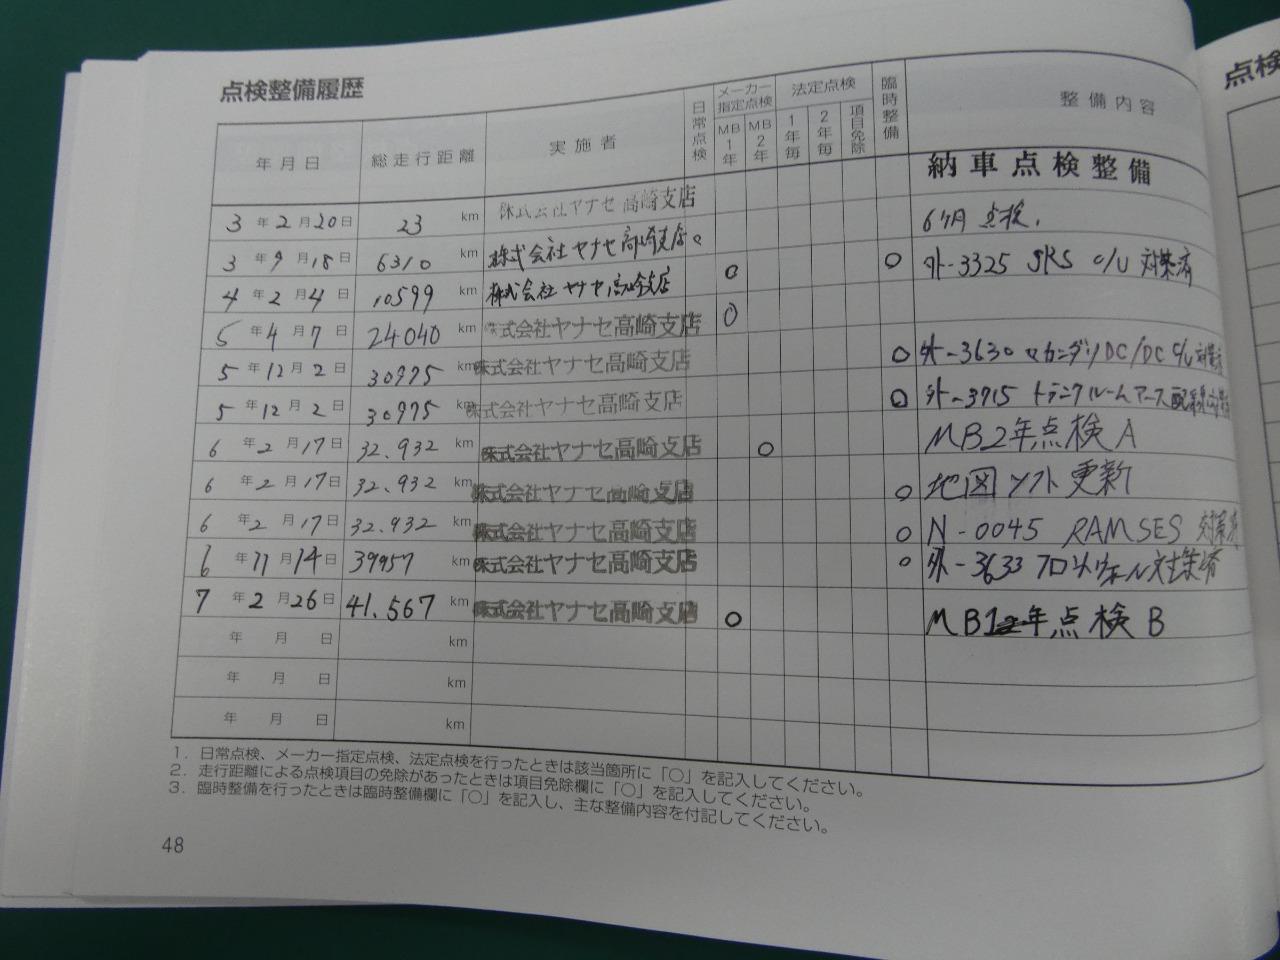 点検整備履歴
年月日 総走行距離 実施者 日常点検 メーカー指定点検 法定点検 臨時整備 整備内容
MB1年 MB2年 1年毎 2年毎 項目免除
納車点検整備
3年2月20日 23km 株式会社ヤナセ高崎支店
3年9月18日 6310km 株式会社ヤナセ高崎支店 6ヶ月点検.
4年2月4日 10599km 株式会社ヤナセ高崎支店 ○ ○ 外-3325 SRS C/U 対策済
5年4月7日 24040km 株式会社ヤナセ高崎支店 ○
5年12月2日 30975km 株式会社ヤナセ高崎支店 ○ 外-3630 セカンダリDC/DC C/U 対策
5年12月2日 30975km 株式会社ヤナセ高崎支店 ○ 外-3715 トランクルームアース配線
6年2月17日 32.932km 株式会社ヤナセ高崎支店 ○ MB2年点検A
6年2月17日 32.932km 株式会社ヤナセ高崎支店 ○ 地図ソフト更新
6年2月17日 32.932km 株式会社ヤナセ高崎支店 ○ N-0045 RAMSES 対策
6年11月14日 39957km 株式会社ヤナセ高崎支店 ○ 外-3633 対策済
7年2月26日 41.567km 株式会社ヤナセ高崎支店 ○ MB1年点検B
年月日 km
年月日 km
年月日 km
1. 日常点検、メーカー指定点検、法定点検を行ったときは該当箇所に「○」を記入してください。
2. 走行距離による点検項目の免除があったときは項目免除欄に「○」を記入してください。
3. 臨時整備を行ったときは臨時整備欄に「○」を記入し、主な整備内容を付記してください。
48
点検